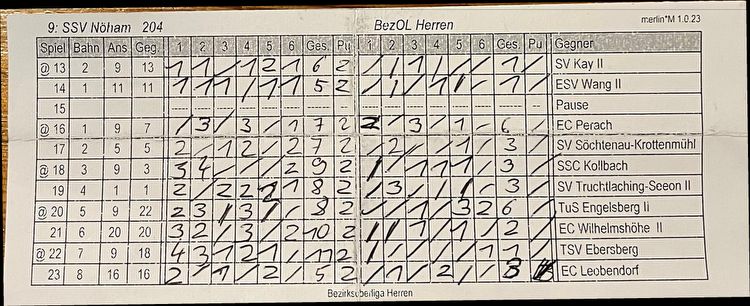 9: SSV Nöham 204 BezOL Herren merlin*M 1.0.23
Spiel Bahn Ans Geg. 1 2 3 4 5 6 Ges. Pu 1 2 3 4 5 6 Ges. Pu Gegner
@ 13 2 9 13 1 1 / 1 2 1 6 2 / / 1 / / / 1 / SV Kay II
14 1 11 11 1 1 1 / 1 1 5 2 / / / / 1 / 1 / ESV Wang II
15 Pause
@ 16 1 9 7 / 3 / 3 / 1 7 2 2 / 3 / 1 - 6 / EC Perach
17 2 5 5 2 / 1 2 / 2 7 2 / 2 / / 1 / 3 / SV Söchtenau-Krottenmühl
@ 18 3 9 3 3 4 / / / 2 9 2 1 / 1 1 1 / 3 / SSC Kollbach
19 4 1 1 2 / 2 2 1 1 8 2 / 3 / / / - 3 / SV Truchtlaching-Seeon II
@ 20 5 9 22 2 3 / 3 / - 8 2 / / 1 / 3 2 6 / TuS Engelsberg Ii
21 6 20 20 3 2 / 3 / 2 10 2 1 1 / 1 / 2 / EC Wilhelmshöhe II
@ 22 7 9 18 4 3 1 2 1 / 11 2 / / / / / 1 1 / TSV Ebersberg
23 8 16 16 2 / 1 / 2 - 5 2 / 1 / 2 / - 3 EC Leobendorf
Bezirksoberliga Herren